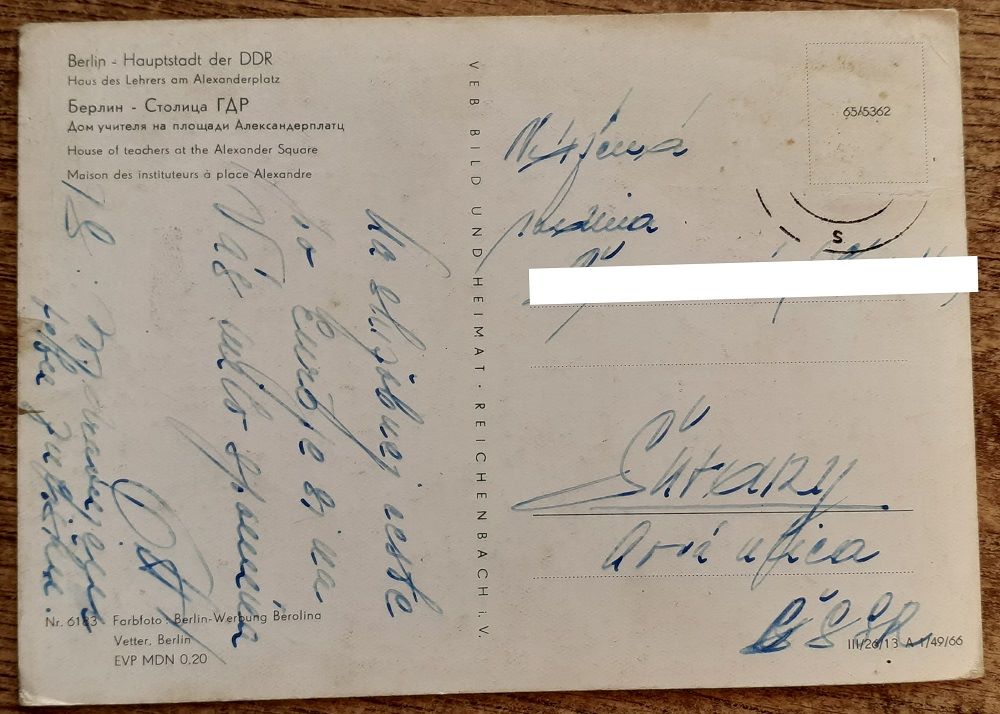 Berlin - Hauptstadt der DDR
Haus des Lehrers am Alexanderplatz
Берлин - Столица ГДР
Дом учителя на площади Александерплатц
House of teachers at the Alexander Square
Maison des instituteurs à place Alexandre
Na služobnej ceste
po Európe aj na
Vás milo spomína
VEB BILD UND HEIMAT · REICHENBACH i. V.
65/5362
S
Vážená
rodina
Šurany
ulica
ČSSR
Nr. 6183 Farbfoto: Berlin-Werbung Berolina
Vetter, Berlin
EVP MDN 0.20
III/26/13 A 1/49/66